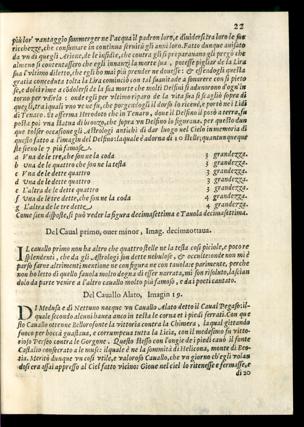 22
più lor' vantaggio sommerger ne l'acqua il padron loro, e diuidersi tra loro le sue
ricchezze, che consumare in continua seruitù gli anni loro. Fatto dunque auisato
da vn di quegli, Arione, de le insidie, che contra gli si preparauano gli pregò che
almeno si contentassero che egli innanzi la morte sua, potesse pigliar de la Lira
sua l'vltimo diletto, che egli ho mai più prender ne douesse: & essendogli questa
gratia concessa tocata la Lira cominciò con tal suauità a sonar
se nò i lasso no
la & dolcezza de la sua morte che molti Delfini si adunorno d'ogn'in
torno per vdirlo: onde egli per vltimo riparo de la vita sua si scagliò sopra di
quegli, tra i quali
in Tenaro
di Tenaro. Et afferma Herodoto che in Tenaro, doue il Delfino il posò a terra, fu
posta poi vna statua di bronzo, che sopra vn Delfino lo figuraua. per questo dun
que tolser occasione gli Astrologi antichi di dar luogo nel Cielo in memoria di
questo fatto a l'imagin del Delfino: laquale è adorna di 10 stelle; quantunque que
ste sieno le 7 più famose.
a Vna de le tre, che son ne la coda 3 grandezza.
b Vna de le quattro che son ne la testa 3 grandezza.
c Vna de le dette quattro 3 grandezza.
d Vna de le dette quattro 3 grandezza.
e L'altra de le dette quattro 3 grandezza.
f Vna de le tre dette, che son ne la coda 4 grandezza.
g L'altra de le tre dette 4 grandezza.
Come sien disposte, si può veder la figura decimasettima e Tauola decimasettima.
Del Caual primo, ouer minor, Imag. decimaottaua.
IL cauallo primo non ha altro che quattro stelle ne la testa così piciole, e poco re
splendenti, che da gli Astrologi son dette nebulosi, & occulte: onde non mi è
parso farue altrimenti mentione ne con figura ne con tauola: e parimente, perche
non ho letto di questo fauola molto degna di esser narrata, mi son risoluto, lascian
dolo da parte venire a l'altro cauallo molto più famoso, e dai poeti cantato.
Del Cauallo Alato, Imagin 19.
DI Medusa e di Nettuno nacque vn Cauallo Alato detto il Caual Pegaso: il
quale secondo alcuni haueua anco in testa le corna et i piedi ferrati. Con que
sto Cauallo ottenne Bellorofonte la vittoria contra la Chimera, laqual gittando
fuoco per bocca guastaua, e corrompeua tutta la Licia, con il medesimo fu vit-
torioso Perseo contra le Gorgone. Questo stesso con l'vngie de i piedi cauò il fonte
Castalio consecrato a le muse: ilquale è ne la sommità di Helicona, monte di Beo-
tia. Meritò dunque vn così vtile, e valoroso Cauallo, che vn giorno ch'egli volan
dosi era assai appresso al Ciel fatto vicino: Gioue nel ciel lo ritenesse e fermasse, e
di 20